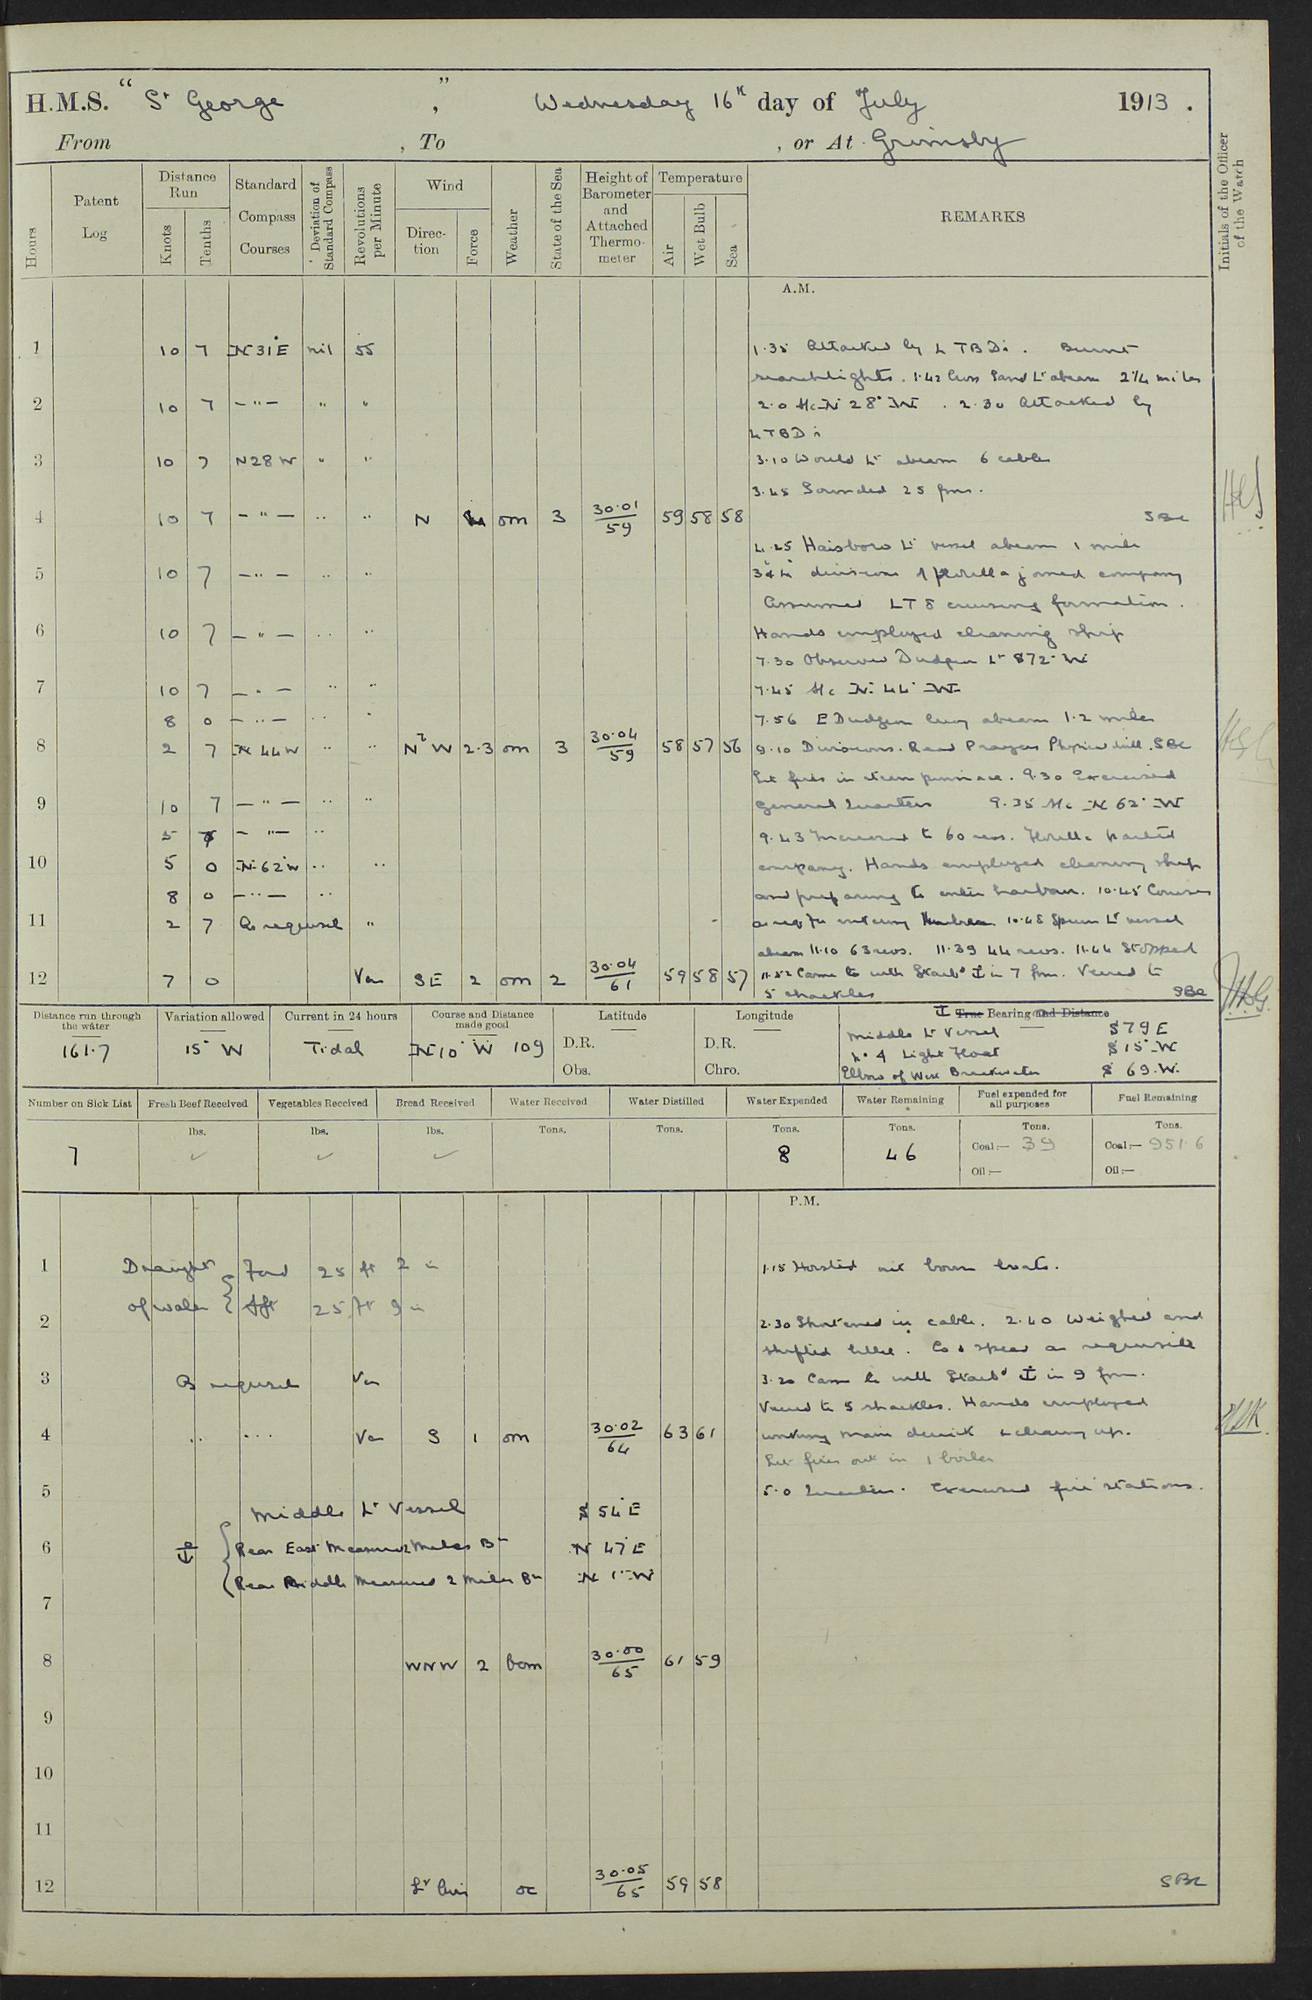 H.M.S. " St George ", Wednesday 16th day of July 1913.
From , To , or At Grimsby
Initials of the Officer of the Watch
Hours
Patent Log
Distance Run
Knots Tenths
Standard Compass Courses
Deviation of Standard Compass
Revolutions per Minute
Wind
Direction Force
Weather
State of the Sea
Height of Barometer and Attached Thermometer
Temperature
Air Wet Bulb Sea
REMARKS
A.M.
1 10 7 N31°E nil 55 1.35 Attacked by 4 TBDs. Burnt
searchlights. 1.42 Cross Sand Lt abeam 2 1/4 miles
2 10 7 -"- " " 2.0 A/c N 28° W. 2.30 Attacked by
4 TBDs
3 10 7 N28W " " 3.10 Would Lt abeam 6 cables
3.45 Sounded 25 fms.
4 10 7 -"- " " N 4 om 3 30.01/59 59 58 58 SBC
4.25 Haisboro Lt vessel abeam 1 mile
5 10 7 -"- " " 3rd & 4th divisions of flotilla joined company
Assumed LT8 cruising formation.
6 10 7 -"- " " Hands employed cleaning ship
7.30 Observed Dudgeon Lt S72°W
7 10 7 -"- " " 7.45 A/c N 44° W
8 0 -"- " " 7.56 E Dudgeon buoy abeam 1.2 miles
8 2 7 N 44W " " NbW 2.3 om 3 30.04/59 58 57 56 9.10 Divisions. Read Prayers Physical drill. SBC
Lit fires in steam pinnace. 9.30 Exercised
9 10 7 -"- " " General Quarters 9.35 A/c N 62° W
5 7 -"- " 9.43 Increased to 60 revs. Flotilla parted
10 5 0 N62°W " " company. Hands employed cleaning ship
8 0 -"- " and preparing to enter harbour. 10.45 Courses
11 2 7 As requisite " as req for entering Humber 10.48 Spurn Lt vessel
abeam 11.10 63 revs. 11.39 44 revs. 11.44 Stopped
12 7 0 Var SE 2 om 2 30.04/61 59 58 57 11.52 Came to with Starbd ⚓ in 7 fms. Veered to
5 shackles SBC
Distance run through the water Variation allowed Current in 24 hours Course and Distance made good Latitude Longitude ⚓ True Bearing and Distance
161.7 15° W Tidal N 10° W 109 D.R. D.R.
Obs. Chro.
Middle Lt Vessel S 79 E
No 4 Light Float S 15° W
Elbow of West Breakwater S 69 W.
Number on Sick List Fresh Beef Received Vegetables Received Bread Received Water Received Water Distilled Water Expended Water Remaining Fuel expended for all purposes Fuel Remaining
lbs. lbs. lbs. Tons. Tons. Tons. Tons. Tons. Tons.
7 ✓ ✓ ✓ 8 46 Coal:— 39 Coal:— 951.6
Oil:— Oil:—
P.M.
1 Draught Ford 25 ft 2 in 1.15 Hoisted out boom boats.
of water Aft 25 ft 9 in
2 2.30 Shortened in cable. 2.40 Weighed and
shifted billet. Co & speed as requisite
3 As requisite Var 3.20 Came to with Starbd ⚓ in 9 fms.
Veered to 5 shackles. Hands employed
4 " " Var S 1 om 30.02/64 63 61 working main derrick & clearing up.
Let fires out in 1 boiler
5 5.0 Quarters. Exercised fire stations.
Middle Lt Vessel S 54°E
6 ⚓ Rear East Measured 2 miles Bn N 47°E
Rear Middle Measured 2 miles Bn N 1° W
7
8 WNW 2 bcm 30.00/65 61 59
9
10
11
12 Lt Airs oc 30.05/65 59 58 SBC